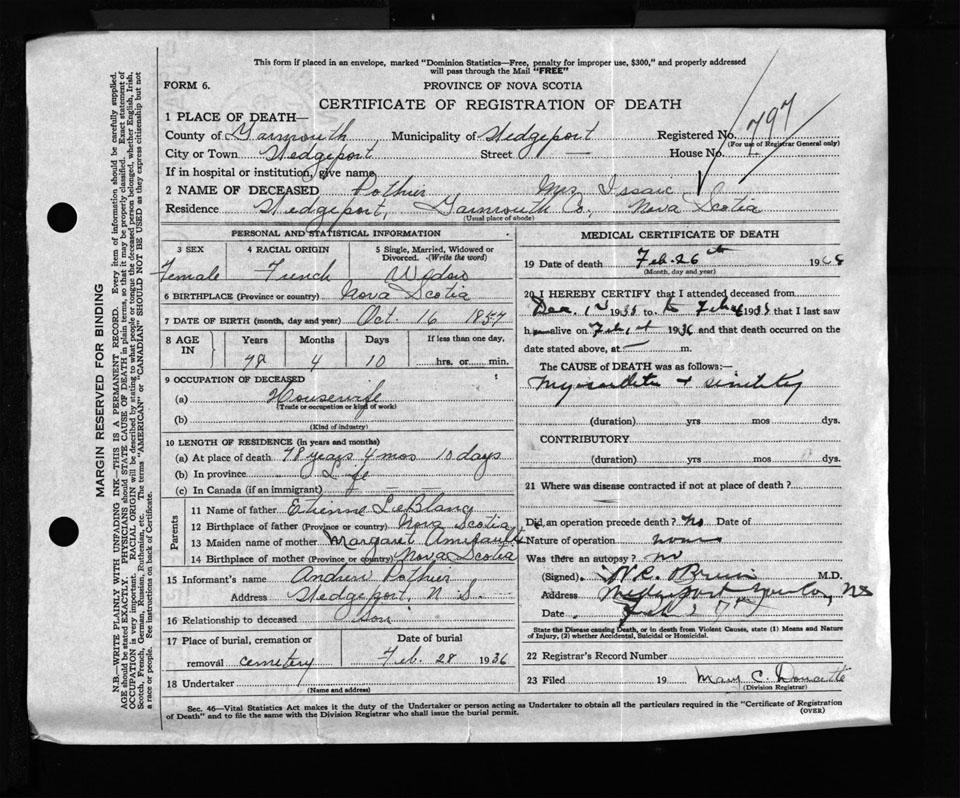 This form if placed in an envelope, marked "Dominion Statistics—Free, penalty for improper use, $300," and properly addressed
will pass through the Mail "FREE"
FORM 6.
PROVINCE OF NOVA SCOTIA
CERTIFICATE OF REGISTRATION OF DEATH
1 PLACE OF DEATH—
County of Yarmouth Municipality of Wedgeport Registered No. 797
(For use of Registrar General only)
City or Town Wedgeport Street — House No.
If in hospital or institution, give name
2 NAME OF DECEASED Pothier Mrs Issaic
Residence Wedgeport, Yarmouth Co., Nova Scotia
(Usual place of abode)
PERSONAL AND STATISTICAL INFORMATION
3 SEX 4 RACIAL ORIGIN 5 Single, Married, Widowed or Divorced. (Write the word)
Female French Widow
6 BIRTHPLACE (Province or country) Nova Scotia
7 DATE OF BIRTH (month, day and year) Oct. 16 1857
8 AGE IN Years Months Days If less than one day.
78 4 10 hrs. or min.
9 OCCUPATION OF DECEASED
(a) Housewife
(Trade or occupation or kind of work)
(b)
(Kind of industry)
10 LENGTH OF RESIDENCE (in years and months)
(a) At place of death 78 years 4 mos 10 days
(b) In province Life
(c) In Canada (if an immigrant)
Parents
11 Name of father Etienne LeBlanc
12 Birthplace of father (Province or country) Nova Scotia
13 Maiden name of mother Margaret Amirault
14 Birthplace of mother (Province or country) Nova Scotia
15 Informant's name Andrew Pothier
Address Wedgeport, N S.
16 Relationship to deceased son
17 Place of burial, cremation or removal cemetery Date of burial Feb. 28 1936
18 Undertaker
(Name and address)
MEDICAL CERTIFICATE OF DEATH
19 Date of death Feb. 26th 19
(Month, day and year)
20 I HEREBY CERTIFY that I attended deceased from
Dec. 1935 to that I last saw
h alive on 1936 and that death occurred on the
date stated above, at — m.
The CAUSE OF DEATH was as follows:—
Myocarditis + senility
(duration) yrs mos dys.
CONTRIBUTORY
(duration) yrs mos dys.
21 Where was disease contracted if not at place of death?
Did an operation precede death? no Date of
Nature of operation
Was there an autopsy? no
(Signed) M.D.
Address
Date
State the Disease causing Death, or in death from Violent Causes, state (1) Means and Nature
of Injury, (2) whether Accidental, Suicidal or Homicidal.
22 Registrar's Record Number
23 Filed 19 Mary C.
(Division Registrar)
Sec. 46—Vital Statistics Act makes it the duty of the Undertaker or person acting as Undertaker to obtain all the particulars required in the "Certificate of Registration
of Death" and to file the same with the Division Registrar who shall issue the burial permit.
(OVER)
MARGIN RESERVED FOR BINDING
N.B.—WRITE PLAINLY WITH UNFADING INK—THIS IS A PERMANENT RECORD. Every item of information should be carefully supplied.
AGE should be stated EXACTLY. PHYSICIANS should STATE CAUSE OF DEATH in plain terms, so that it may be properly classified. Exact statement of
OCCUPATION is very important. RACIAL ORIGIN will be described by stating to what people or tongue the deceased person belonged, whether English, Irish,
Scotch, French, German, Russian, Ruthenian, etc. The terms "AMERICAN" or "CANADIAN" SHOULD NOT BE USED as they express citizenship but not
a race or people. See instructions on back of Certificate.